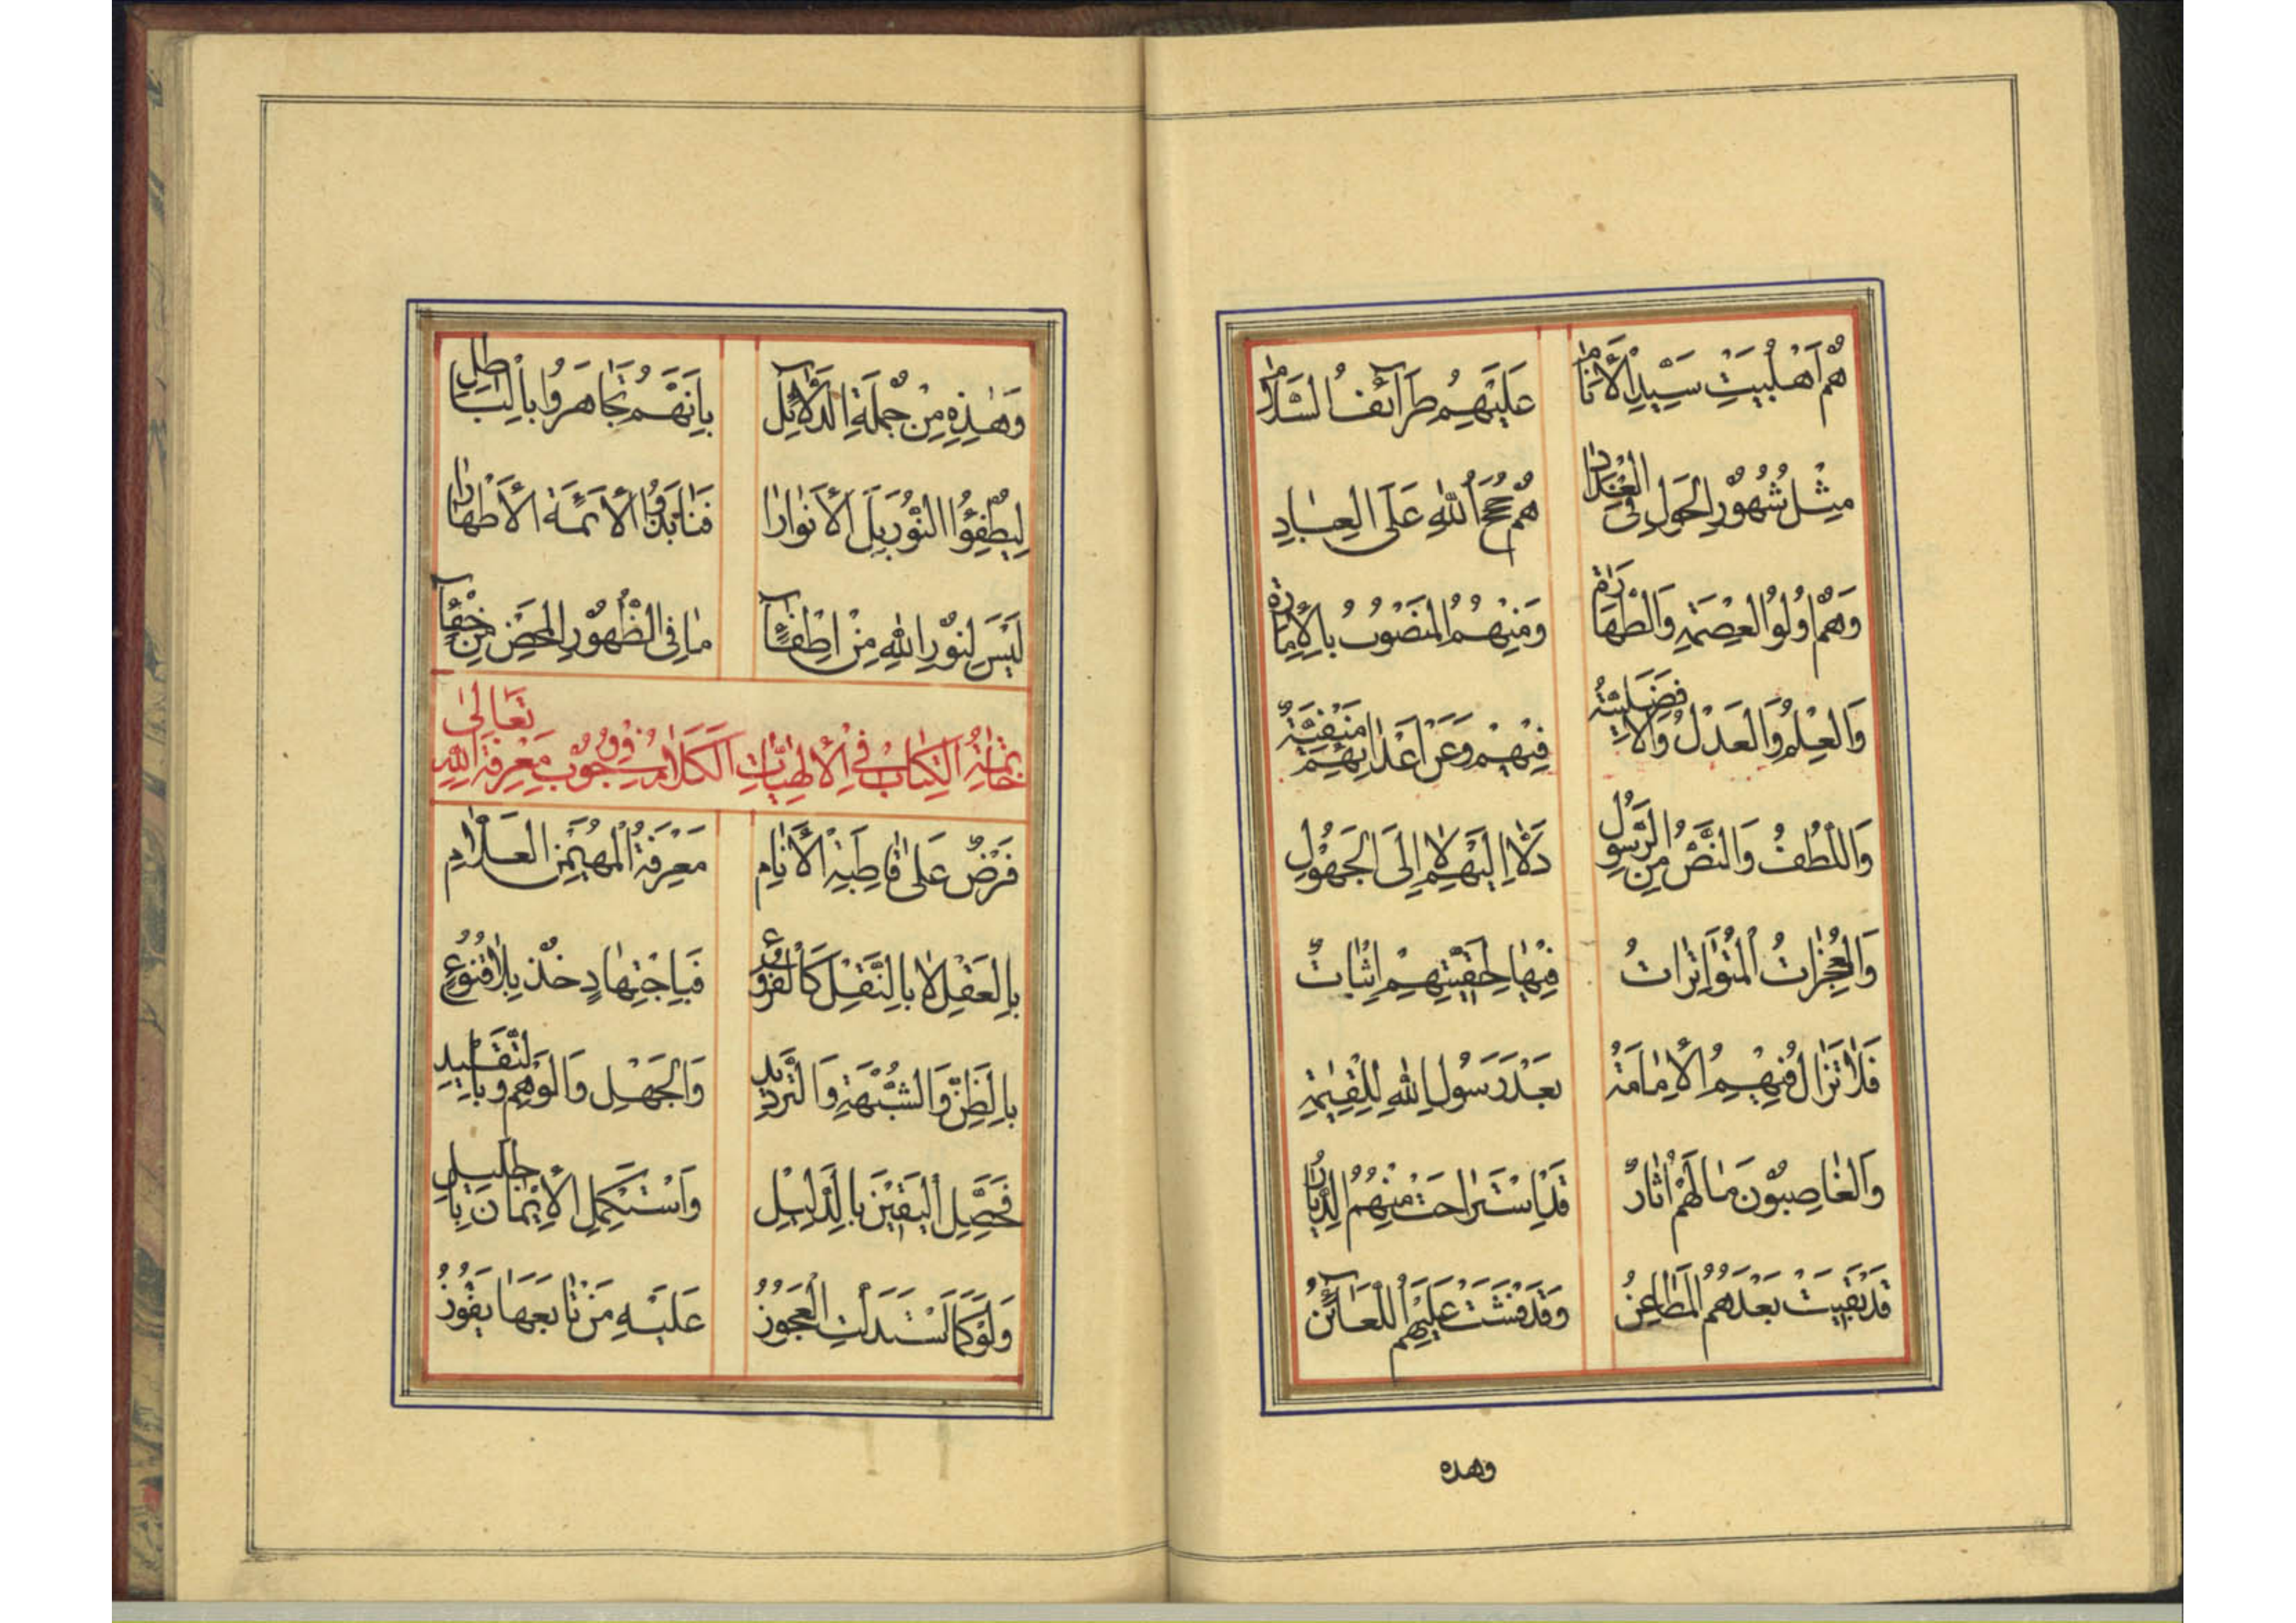 هُمْ اَهْلُبَيْتِ سَيِّدِ الْاَنَامِ عَلَيْهِمُ طَرَآئِفُ السَّلَامِ
مِثْلُ شُهُوْرِ الْحَوْلِ فِى الْعِدَادِ هُمْ حُجَجُ اللهِ عَلَى الْعِبَادِ
وَهُمْ اُولُوا الْعِصْمَةِ وَالطَّهَارَةِ وَمِنْهُمُ الْمَنْصُوْبُ بِالْاِمَارَةِ
وَالْعِلْمُ وَالْعَدْلُ وَالْاَفْضَلِيَّةُ فِيْهِمْ وَعَنْ اَعْدَائِهِمْ مَنْفِيَّةٌ
وَاللُّطْفُ وَالنَّصُّ مِنَ الرَّسُوْلِ دَلَّا اِلَيْهِمْ لَا اِلَى الْجَهُوْلِ
وَالْمُعْجِزَاتُ الْمُتَوَاتِرَاتُ فِيْهَا لِحَقِّيَّتِهِمْ اِثْبَاتٌ
فَلَا تَزَالُ فِيْهِمُ الْاِمَامَةُ بَعْدَ رَسُولِ اللهِ لِلْقِيٰمَةِ
وَالْغَاصِبُوْنَ مَا لَهُمْ اٰثَارٌ قَدِ اسْتَرَاحَتْ مِنْهُمُ الدِّيَارُ
قَدْ بَقِيَتْ بَعْدَهُمُ الْمَطَاعِنُ وَقَدْ فَشَتْ عَلَيْهِمُ اللَّعَآئِنُ
وهذه
وَهٰذِهِ مِنْ جُمْلَةِ الدَّلَآئِلِ بِاَنَّهُمْ تَجَاهَرُوا بِالْبَاطِلِ
لِيُطْفِؤُا النُّوْرَ بَلِ الْاَنْوَارَا فَنَابَذُوا الْاَئِمَّةَ الْاَطْهَارَا
لَيْسَ لِنُوْرِ اللهِ مِنْ اِطْفَآءٍ مَا فِى الظُّهُوْرِ الْمَحْضِ مِنْ خَفَآءٍ
خَاتِمَةُ الْكِتَابِ فِى الْاِلٰهِيَّاتِ الْكَلَامُ فِى وُجُوْبِ مَعْرِفَةِ اللهِ تَعَالٰى
فَرْضٌ عَلٰى قَاطِبَةِ الْاَنَامِ مَعْرِفَةُ الْمُهَيْمِنِ الْعَلَّامِ
بِالْعَقْلِ لَا بِالنَّقْلِ كَالْفُرُوْعِ فَبِاجْتِهَادٍ خُذْ بِلَا قُنُوْعٍ
بِالظَّنِّ وَالشُّبْهَةِ وَالتَّرْدِيْدِ وَالْجَهْلِ وَالْوَهْمِ وَبِالتَّقْلِيْدِ
فَحَصِّلِ الْيَقِيْنَ بِالدَّلِيْلِ وَاسْتَكْمِلِ الْاِيْمَانَ بِالْجَلِيْلِ
وَلَوْ كَمَا اسْتَدَلَّتِ الْعَجُوْزُ عَلَيْهِ مَنْ تَابَعَهَا يَفُوْزُ